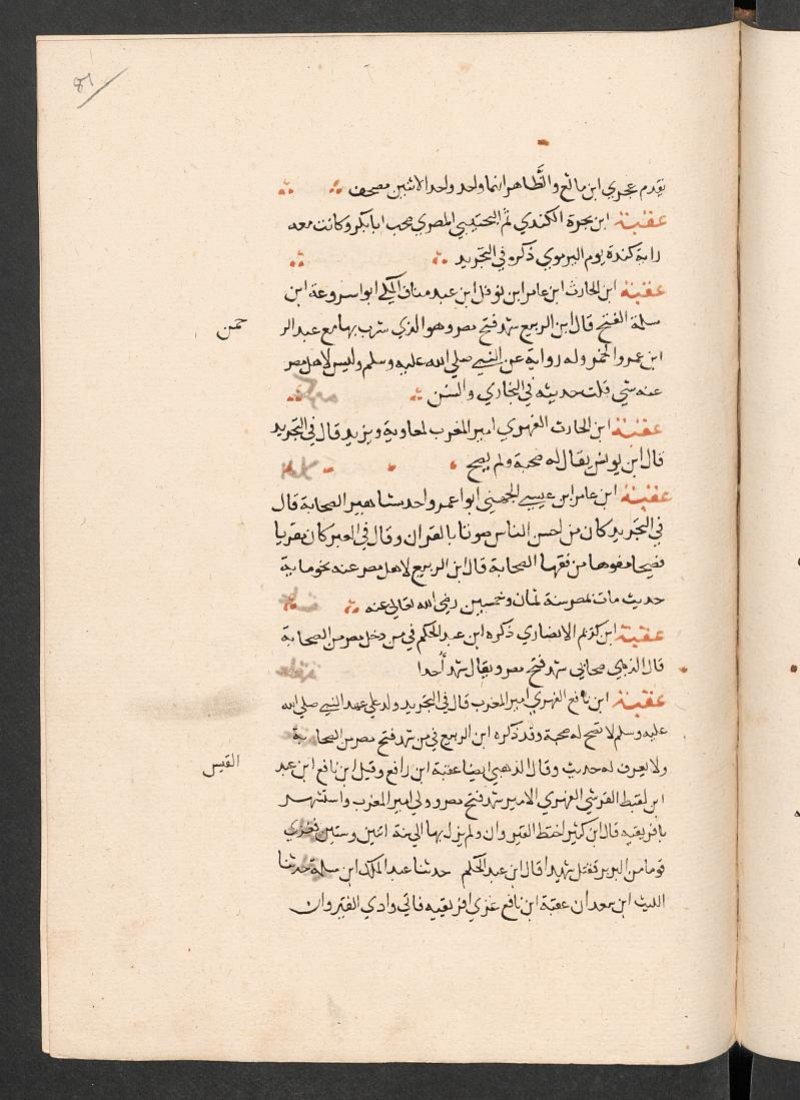 81
تقدم عجري ابن مانع والظاهر انما واحد واحد الاثنين مصحف
عقبة ابن بجرة الكندي ثم التجيبي المصري صحب ابا بكر وكانت معه
راية كندة يوم اليرموك ذكره في التجريد
عقبة ابن الحارث ابن عامر ابن نوفل ابن عبد مناف المكي ابوا سروعة ابن
سلمة الفتح قال ابن الربيع شهد فتح مصر وهو الذي شرب بها مع عبد الر
حمن
ابن عمر والخمر وله رواية عن النبي صلي الله عليه وسلم وليس لاهل مصر
عنه شي قلت حديثه في البخاري والسنن
عقبة ابن الحارث الفهري امير المغرب لمعاوية ويزيد قال في التجريد
قال ابن يونس يقال له صحبة ولم يصح
عقبة ابن عامر ابن عيسي الجهني ابوا عمرو احد مشاهير الصحابة قال
في التجريد كان من احسن الناس صوتا بالقران وقال في العبر كان مقريا
فصيحا مفوها من فقها الصحابة قال ابن الربيع لاهل مصر عنه نحو ماية
حديث مات بمصر سنة ثمان وخمسين رضي الله تعالي عنه
عقبة ابن كريم الانصاري ذكره ابن عبد الحكم في من دخل مصر من الصحابة
قال الذهبي صحابي شهد فتح مصر ويقال شهد أحدا
عقبة ابن نافع الفهري امير المغرب قال في التجريد ولد علي عهد النبي صلي الله
عليه وسلم لا تصح له صحبة وقد ذكره ابن الربيع في من شهد فتح مصر من الصحابة
ولا يعرف له حديث وقال الذهبي ايضا عقبة ابن رافع وقيل ابن نافع ابن عبد
القيس
ابن لقيط القرشي الفهري الامير شهد فتح مصر وولي امير المغرب واستشهد
بافريقيه قال ابن كثير اختط القيروان ولم يزل بها الي سنة اثنين وستين فغزي
قوما من البربر فقتل شهيدا قال ابن عبد الحكم حدثنا عبد الملك ابن سلمة حدثنا
الليث ابن سعد ان عقبة ابن نافع غزي افريقيه فاتي وادي القيروان